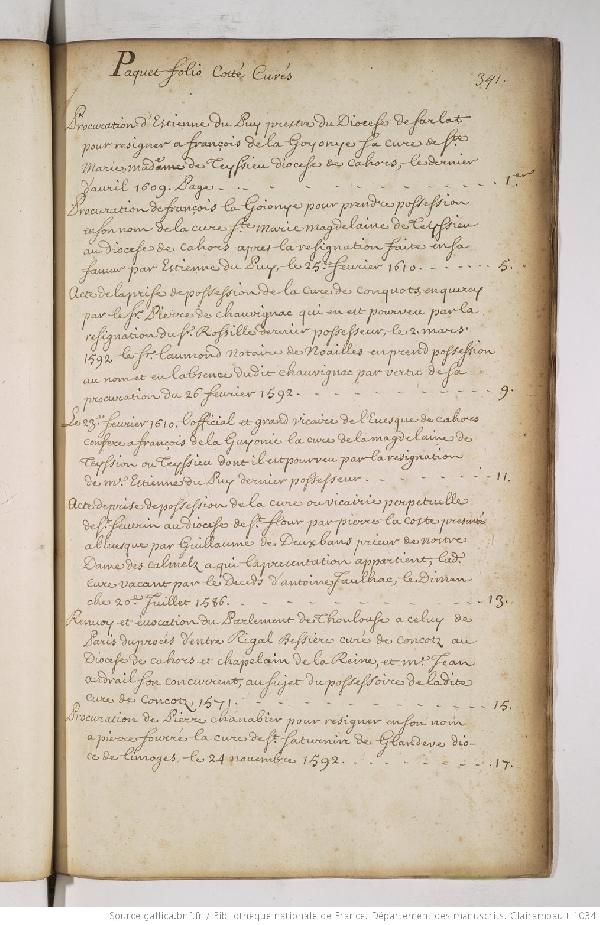 Paquet folio Cotté Curés
341.
Procuration d'Estienne du Puy prestre du Diocese de sarlat
pour resigner a françois de la Goyonye sa cure de Ste
Marie madame de Teyssieu diocese de Cahors, le dernier
d'avril 1609. Page . . . . 1er
Procuration de françois la Goionye pour prendre possession
en son nom de la cure Ste Marie Magdelaine de Teissieu
au diocese de Cahors apres la resignation faite en sa
faveur par Estienne du Puy, le 25e fevrier 1610. . . . . 5.
Acte de la prise de possession de la Cure de Conquots, en quercy
par le sr. Pierre de chauvignac qui en est pourveu par la
resignation du sr. Rossille dernier possesseur, le 2. mars
1592 le sr. Laumond Notaire de Noailles en prend possession
au nom et en l'absence dudit chauvignac par vertu de sa
procuration du 26 fevrier 1592. . . . . 9.
Le 23e fevrier 1610. l'official et grand vicaire de l'Evesque de cahors
confere a françois de la Guyonie la cure de la magdelaine de
Teyssion ou Teyssieu dont il est pourveu par la resignation
de mre. Estienne du Puy dernier possesseur. . . . . 11.
Acte de prise de possession de la cure ou vicairie perpetuelle
de st. saurin au diocese de st. flour par pierre la Coste presenté
a l'evesque par Guillaume de Deuxbans prieur de nostre
Dame des Calmelz a qui la presentation appartient, lad.
Cure vacant par le Decés d'antoine Jaulhac, le Diman
che 20e Juillet 1586. . . . . 13.
Renvoy et evocation du Parlement de Thoulouse a celuy de
Paris du procés d'entre Regal Bessiere curé de Concotz au
Diocese de Cahors et chapelain de la Reine, et mre. Jean
son concurrent, au sujet du possessoire de ladite
cure de Concotz, 1571. . . . . 15.
Procuration de Pierre chanabier pour resigner en son nom
a pierre fourré la cure de st. saturnin de Glandeve dio-
ce de limoges, le 24 novembre 1592. . . . . 17.
Source gallica.bnf.fr / Bibliothèque nationale de France. Département des manuscrits. Clairambault 1034